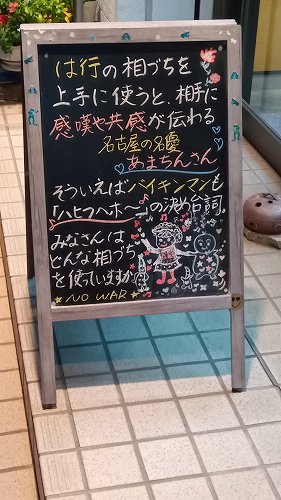 は行の相づちを
上手に使うと、相手に
感嘆や共感が伝わる
名古屋の名優
あまちんさん
そういえばバイキンマンも
「ハヒフヘホ〜」の決め台詞。
みなさんは
どんな相づち
を使っていますか?
★NO WAR★